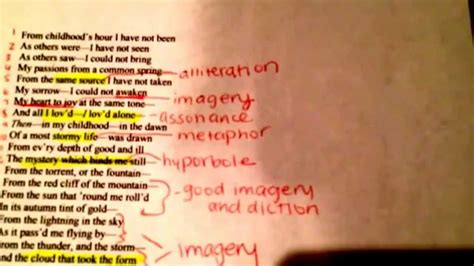 1 From childhood's hour I have not been
2 As others were—I have not seen
3 As others saw—I could not bring
4 My passions from a common spring— alliteration
5 From the same source I have not taken
6 My sorrow—I could not awaken imagery
7 My heart to joy at the same tone—
8 And all I lov'd—I lov'd alone— assonance
9 Then—in my childhood—in the dawn
10 Of a most stormy life—was drawn metaphor
From ev'ry depth of good and ill
The mystery which binds me still— hyporbole
From the torrent, or the fountain—
From the red cliff of the mountain— -good imagery
From the sun that 'round me roll'd and diction
In its autumn tint of gold—
From the lightning in the sky
As it pass'd me flying by—
From the thunder, and the storm— imagery
and the cloud that took the form